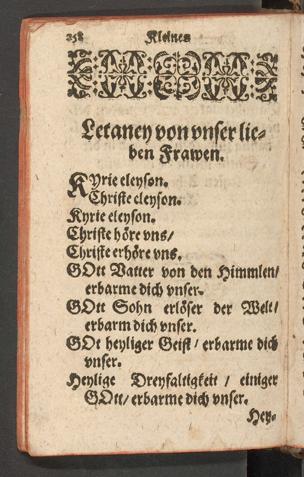 258 Kleines
Letaney von vnser lie-
ben Frawen.
KYrie eleyson.
Christe eleyson.
Kyrie eleyson.
Christe höre vns/
Christe erhöre vns.
GOtt Vatter von den Himmlen/
erbarme dich vnser.
GOtt Sohn erlöser der Welt/
erbarm dich vnser.
GOt heyliger Geist / erbarme dich
vnser.
Heylige Dreyfaltigkeit / einiger
GOtt/ erbarme dich vnser.
Hey-